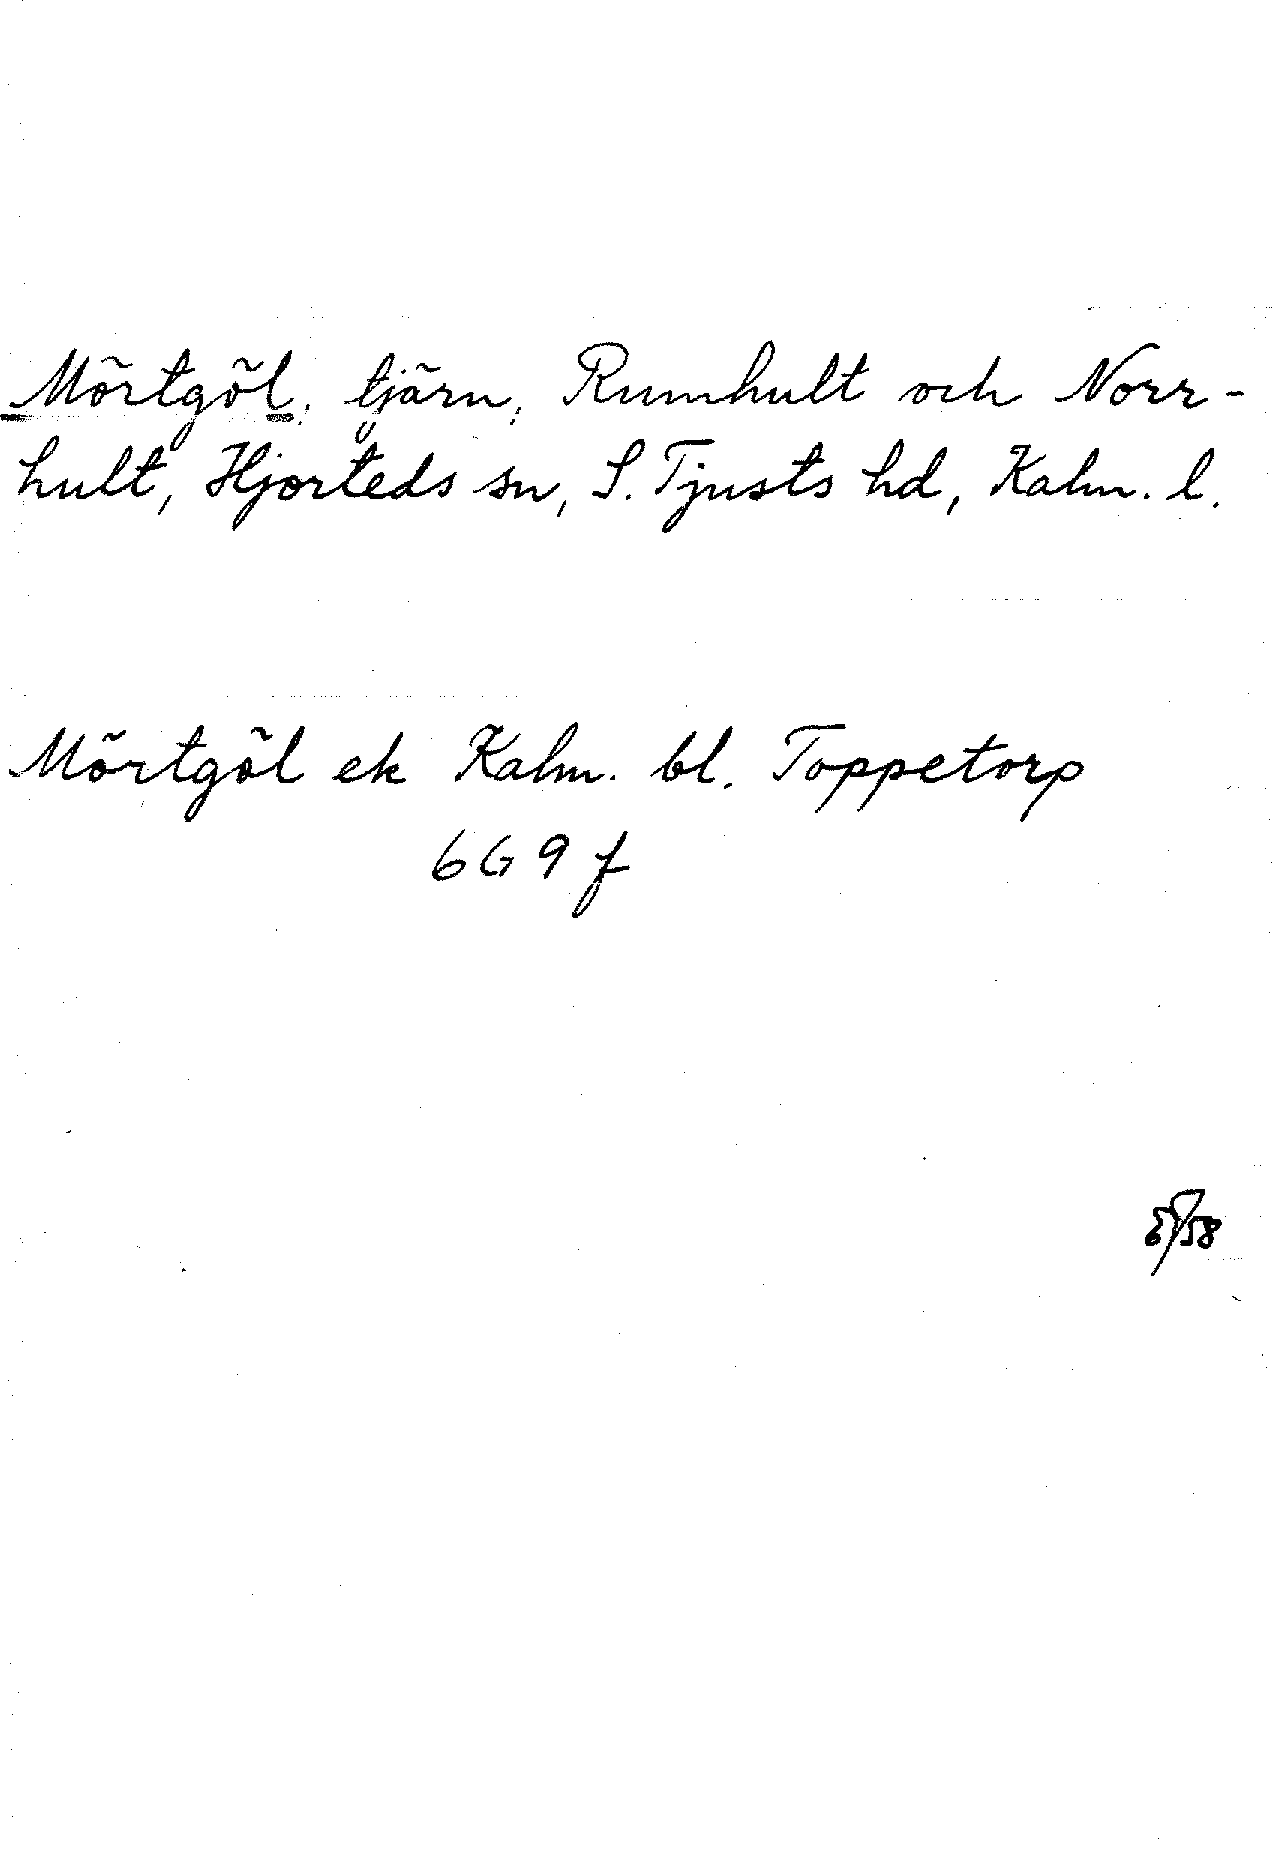 Mörtgöl, tjärn, Rumhult och Norr-
hult, Hjorteds sn, S. Tjusts hd, Kalm. l.
Mörtgöl ek Kalm. bl. Toppetorp
6G 9 f